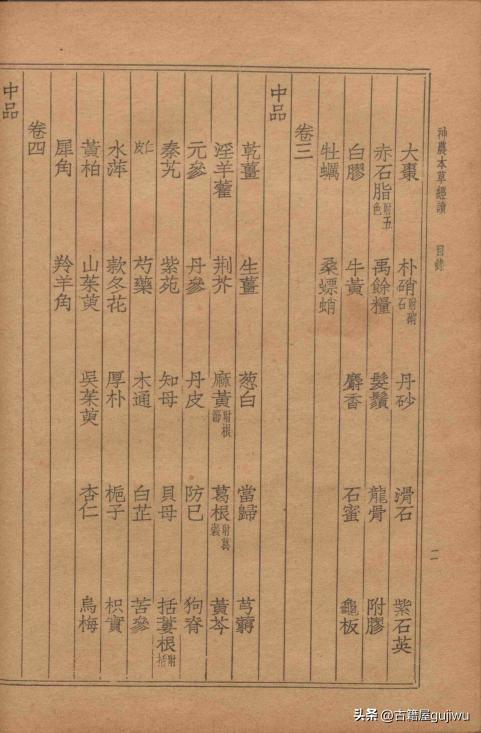 神農本草經讀 目錄 二
大棗 朴硝附硝石 丹砂 滑石 紫石英
赤石脂附五色 禹餘糧 髮鬚 龍骨 附膠
白膠 牛黃 麝香 石蜜 龜板
牡蠣 桑螵蛸
卷三
中品
乾薑 生薑 葱白 當歸 芎藭
淫羊藿 荆芥 麻黃附根節 葛根附葛穀 黃芩
元參 丹參 丹皮 防巳 狗脊
秦艽 紫苑 知母 貝母 括蔞根附括
芍藥 木通 白芷 苦參
水萍 款冬花 厚朴 梔子 枳實
黃柏 山茱萸 吳茱萸 杏仁 烏梅
犀角 羚羊角
卷四
中品
头条 @古籍屋gujiwu